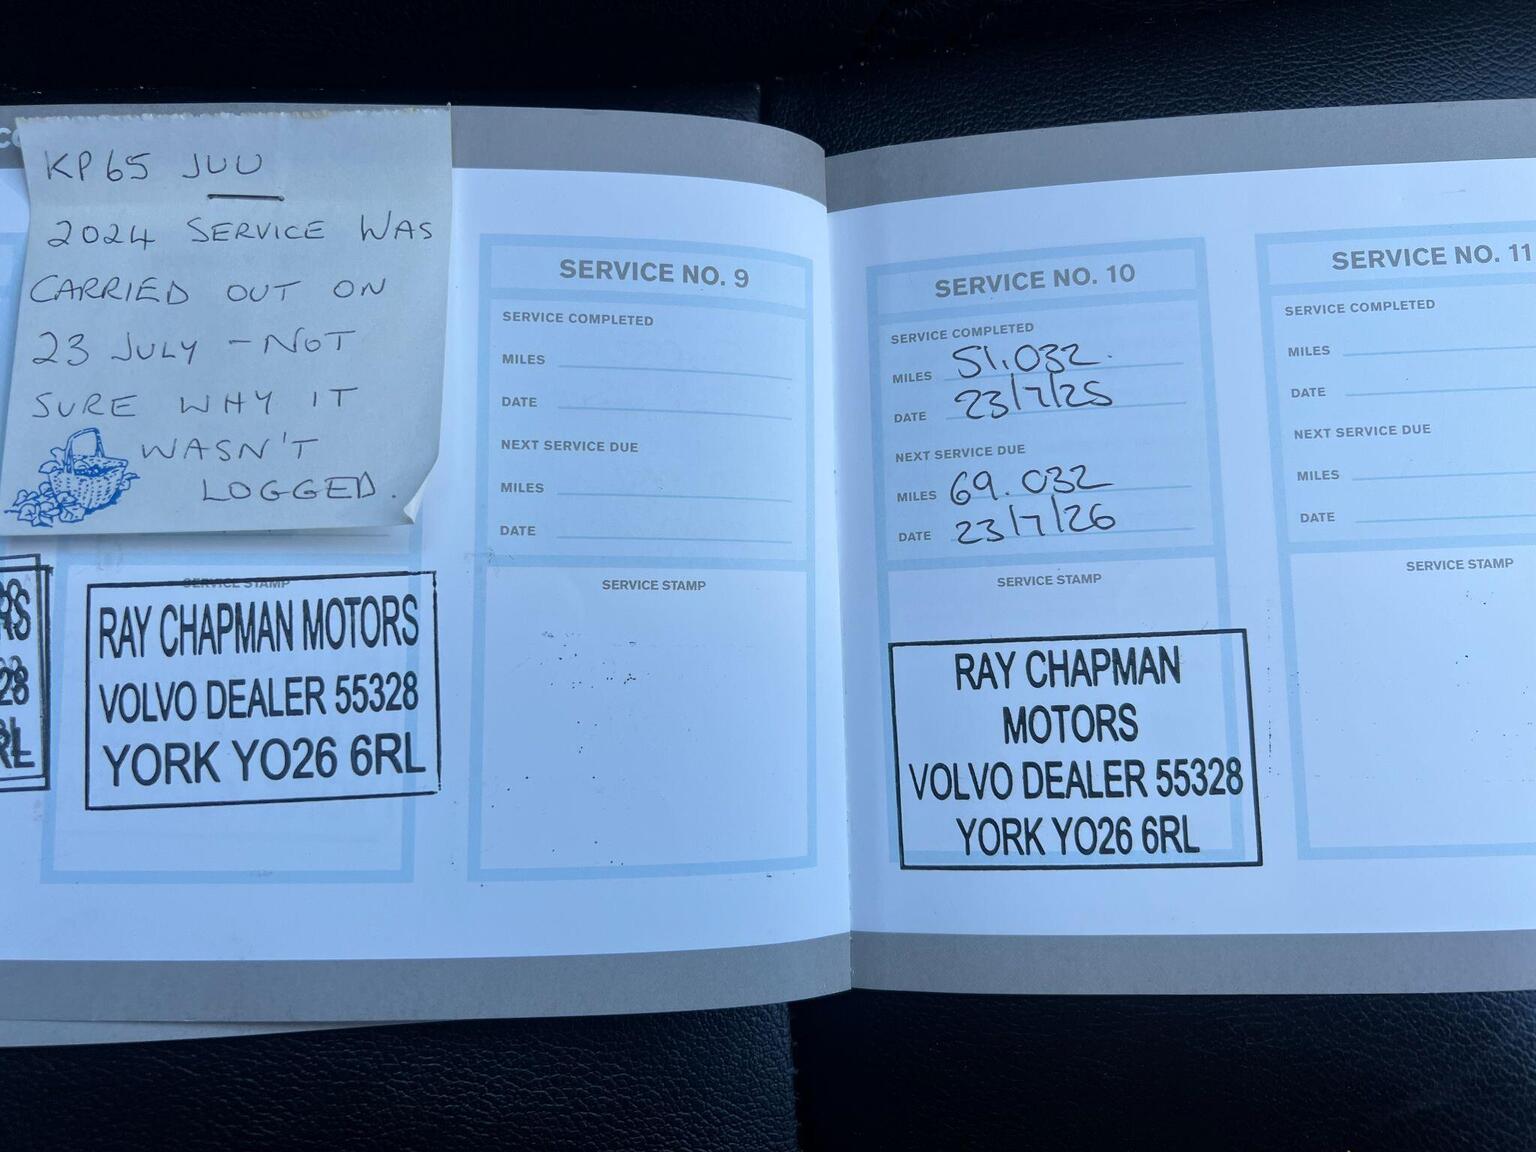 KP65 JUU
2024 SERVICE WAS
CARRIED OUT ON
23 JULY - NOT
SURE WHY IT
WASN'T
LOGGED.
SERVICE STAMP
RAY CHAPMAN MOTORS
VOLVO DEALER 55328
YORK YO26 6RL
SERVICE NO. 9
SERVICE COMPLETED
MILES
DATE
NEXT SERVICE DUE
MILES
DATE
SERVICE STAMP
SERVICE NO. 10
SERVICE COMPLETED
MILES 51.032.
DATE 23/7/25
NEXT SERVICE DUE
MILES 69.032
DATE 23/7/26
SERVICE STAMP
RAY CHAPMAN
MOTORS
VOLVO DEALER 55328
YORK YO26 6RL
SERVICE NO. 11
SERVICE COMPLETED
MILES
DATE
NEXT SERVICE DUE
MILES
DATE
SERVICE STAMP